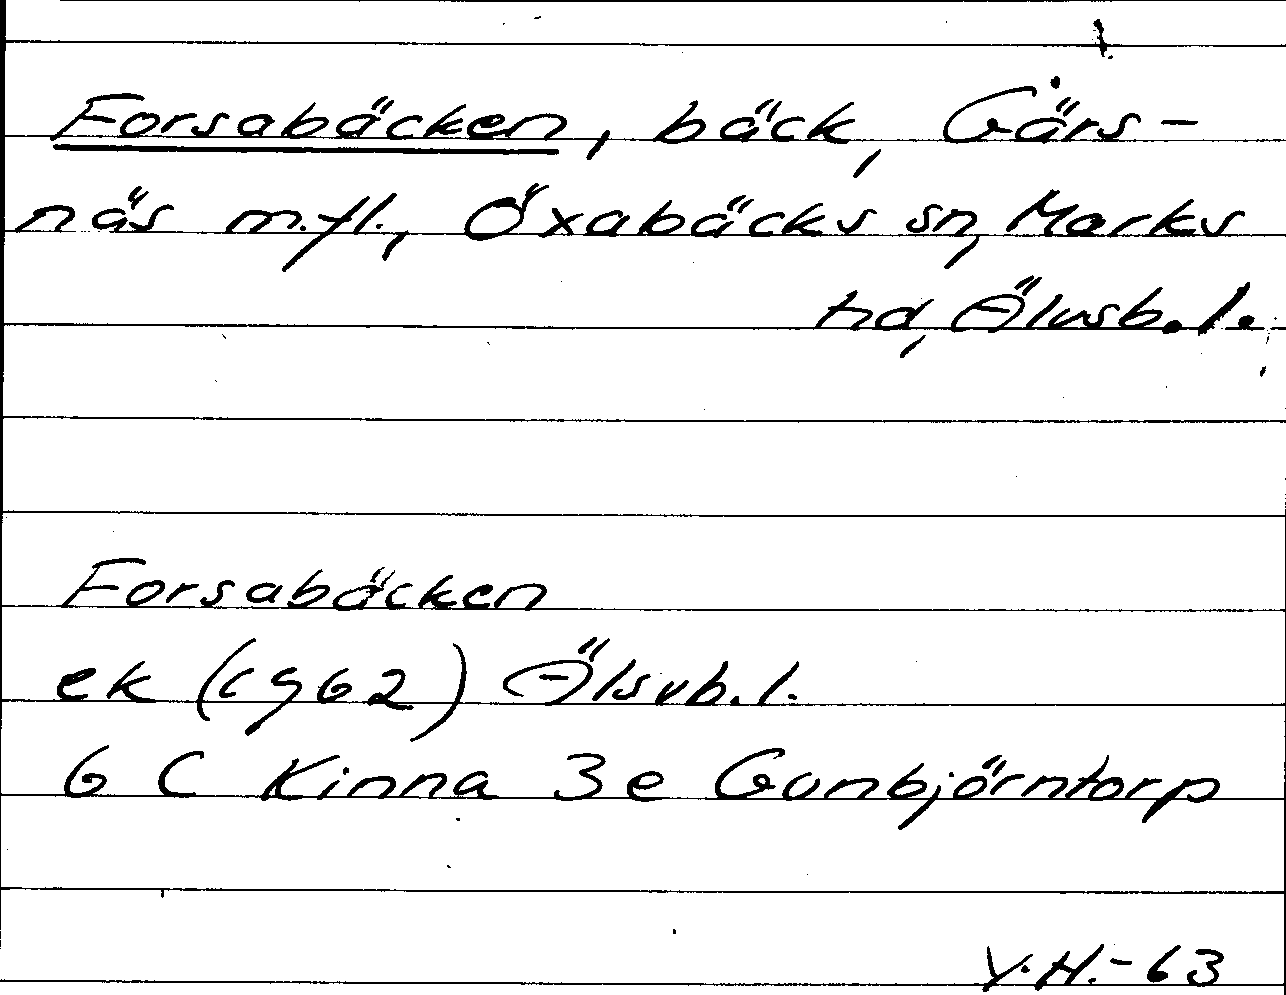 Forsabäcken, bäck, Gärs-
näs m.fl., Öxabäcks sn, Marks
hd, Älvsb.l.
Forsabäcken
ek (1962) Älsvb.l.
6 C Kinna 3e Gunbjörntorp
Y.H.-63